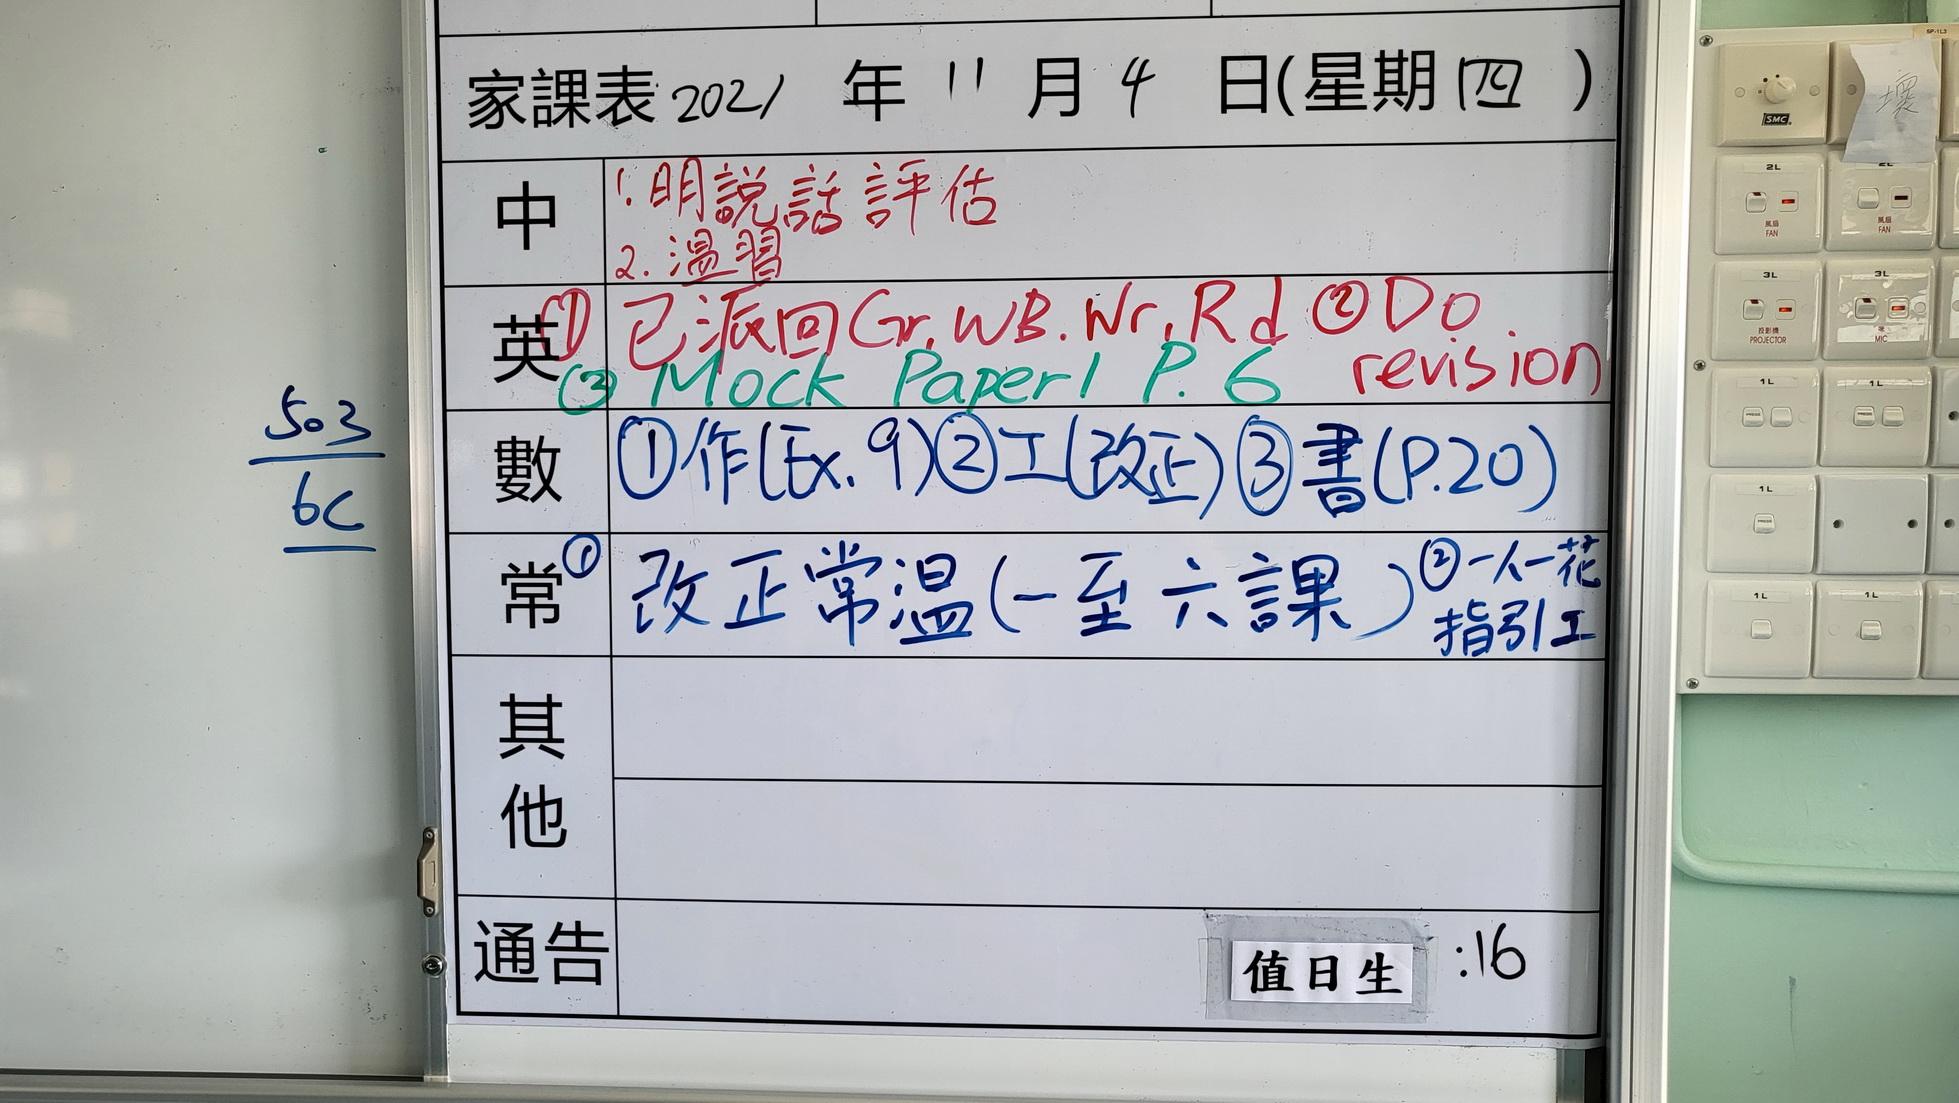 家課表 2021 年 11 月 4 日(星期四)
中
1. 明說話評估
2. 溫習
英 ① 已派回 Gr. WB. Wr, Rd ② Do revision
③ Mock Paper 1 P. 6
數 ①作(Ex. 9)②工(改正)③書(P.20)
常 ① 改正常温(一至六課) ②一人一花
指引工
其他
通告
值日生 :16
503
6C
SP-1L3
壞
SMC
2L
2L
風扇
FAN
風扇
FAN
3L
3L
投影機
PROJECTOR
咪
MIC
1L
1L
PRESS
PRESS
1L
PRESS
1L
1L